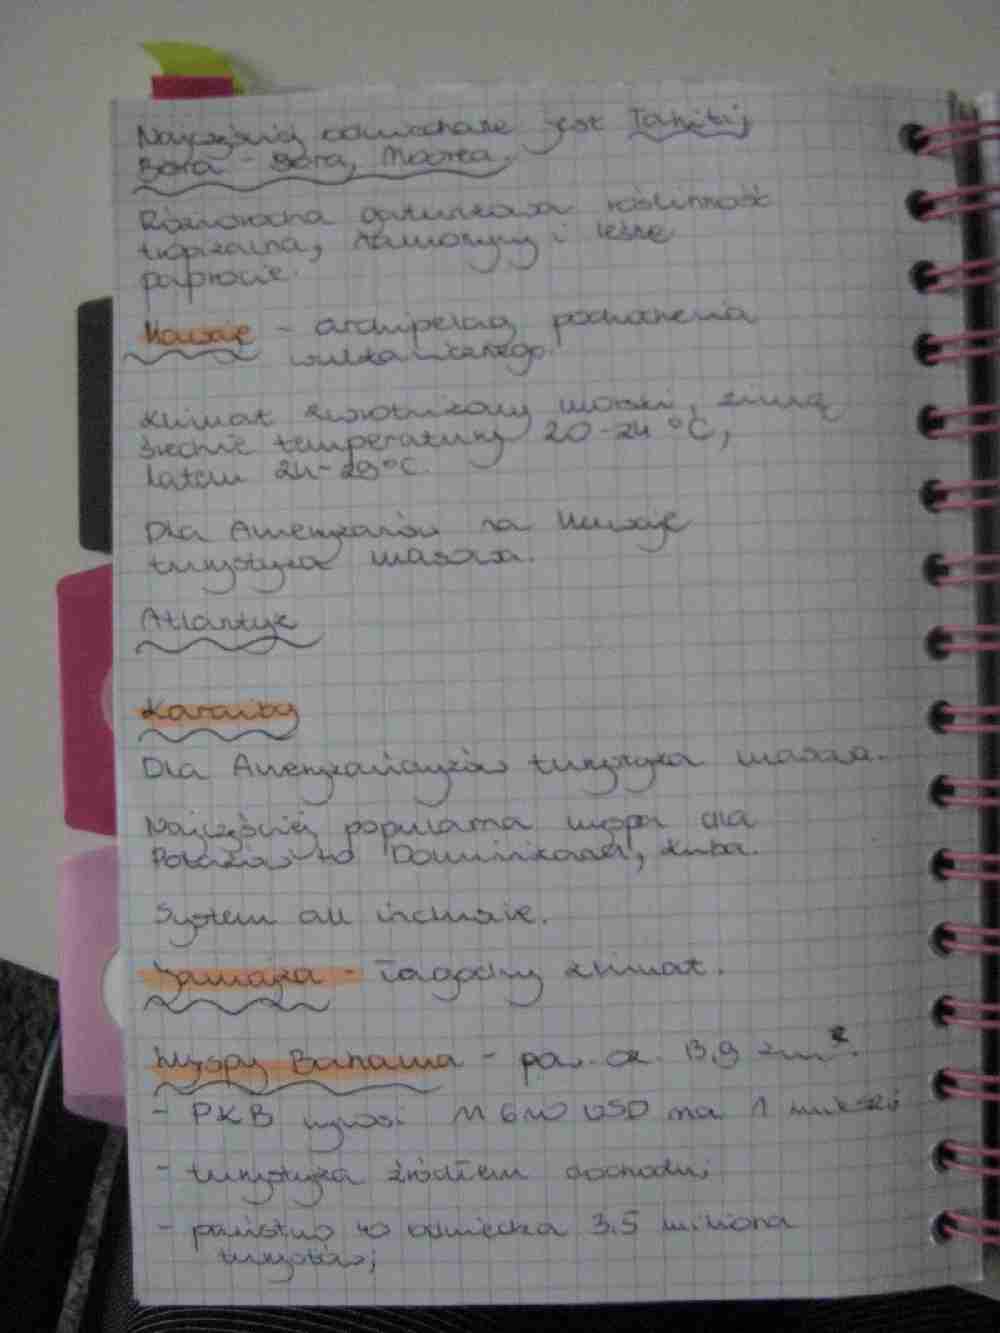 Najczęściej odwiedzane jest Tahiti,
Bora - Bora, Moorea,
Różnorodna gatunkowa roślinność
tropikalna, namorzyny i leśne
paprocie.
Hawaje - archipelag pochodzenia
wulkanicznego.
Klimat zwrotnikowy morski, zimą
średnie temperatury 20-24 °C,
latem 24-29°C.
Dla Amerykanów na Hawaje
turystyka masowa.
Atlantyk
Karaiby
Dla Amerykańczyków turystyka masowa.
Najczęściej popularna wyspa dla
Polaków to Dominikana, Kuba.
System all inclusive.
Jamajka - łagodny klimat.
Wyspy Bahama - pow. ok. 13,9 km².
- PKB wynosi USD na 1 mieszk.
- turystyka źródłem dochodu;
- państwo to odwiedza 3.5 miliona
turystów;